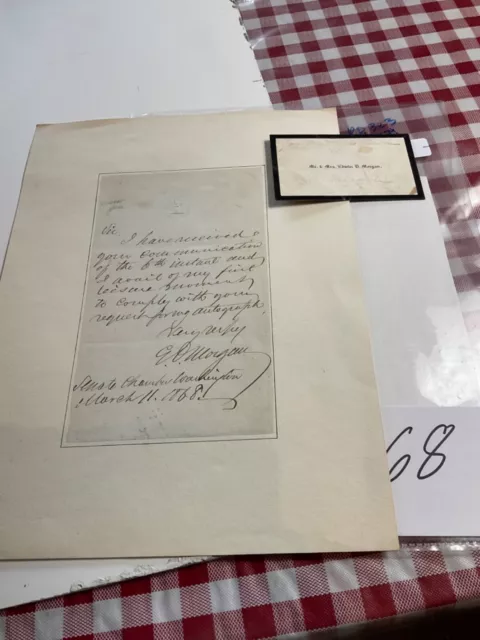 Sir.
I have received
your communication
of the 6th instant and
I avail of my first
leisure moment
to comply with your
request for my autograph.
Very resp'y
E. D. Morgan
Senate Chamber Washington
March 11. 1868.
Mr. & Mrs. Edwin D. Morgan.
68